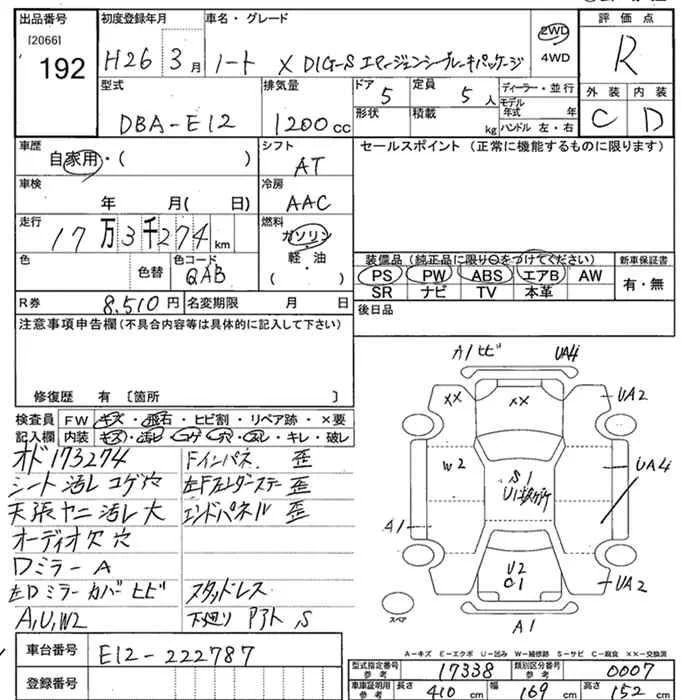 出品番号
[2066]
192
初度登録年月
H26年 3月
車名・グレード
ノート X DIG-S エマージェンシーブレーキパッケージ
2WD
4WD
評価点
R
外装 内装
C D
型式
DBA-E12
排気量
1200cc
ドア 5
形状
定員 5人
積載 kg
ディーラー・並行
モデル年式 年
ハンドル 左・右
車歴
自家用・( )
シフト
AT
セールスポイント（正常に機能するものに限ります）
車検
年 月( 日)
冷房
AAC
走行
17万3千274km
燃料
ガソリン・軽・油
色
色替
色コード
QAB
装備品（純正品に限り○をつけてください）
PS PW ABS エアB AW
SR ナビ TV 本革
新車保証書
有・無
R券 8,510円
名変期限 月 日
後日品
注意事項申告欄（不具合内容等は具体的に記入して下さい）
修復歴 有 〔箇所 〕
検査員記入欄
FW キズ・飛石・ヒビ割・リペア跡・×要
内装 キズ・汚れ・コゲ・穴・スレ・キレ・破レ
オド 173274
シート 汚レ コゲ 穴
天張 ヤニ 汚レ 大
オーディオ欠 穴
Dミラー A
左Dミラー カバー ヒビ
A,U,W2
Fインパネ. 歪
左Fフェンダーステー 歪
エンドパネル 歪
スタッドレス
下廻り P外 ,S
A1ヒビ UA4
XX XX UA2
W2 S1
U1 UA4
A1
U2
C1 UA2
スペア
A1
A－キズ E－エクボ U－凹み W－補修跡 S－サビ C－腐食 XX－交換済
車台番号
E12-222787
登録番号
型式指定番号 参考 17338
類別区分番号 参考 0007
車庫証明用 参考 長さ 410cm 幅 169cm 高さ 152cm